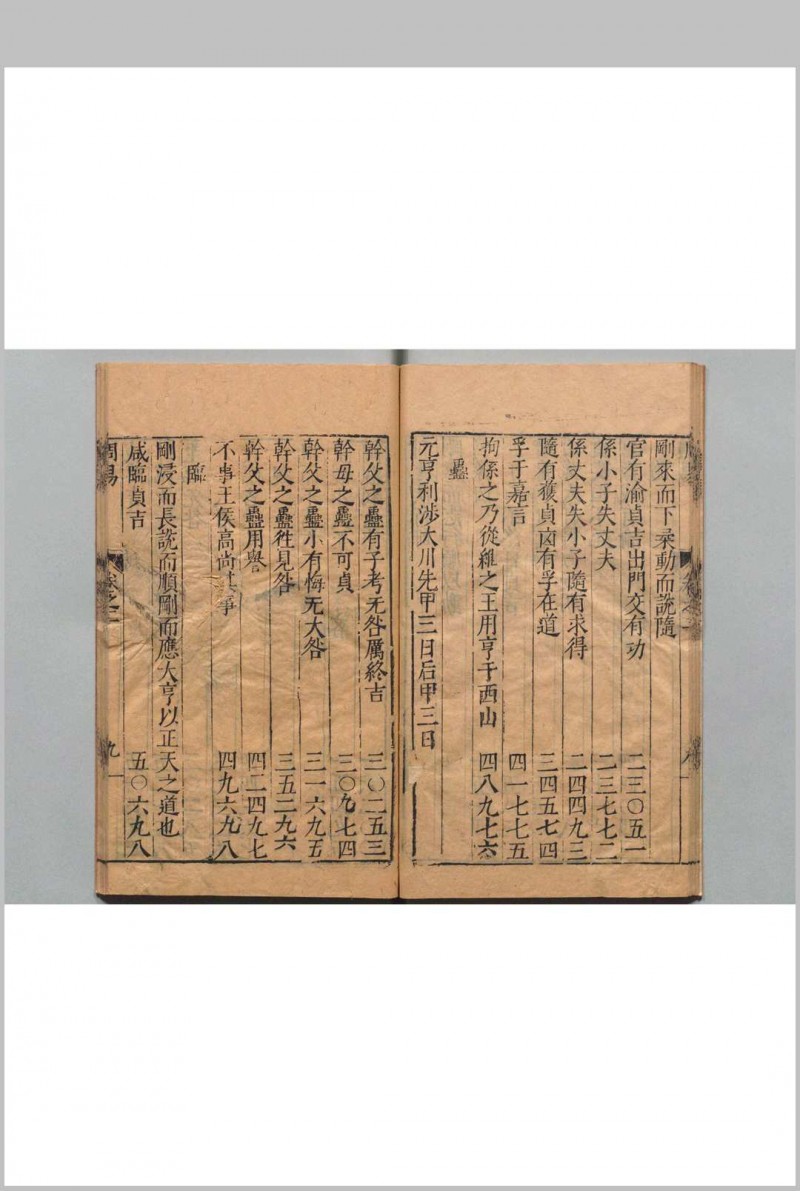 剛來而下柔動而說隨
官有渝貞吉出門交有功 二三〇五一
係小子失丈夫 二三七七二
係丈夫失小子隨有求得 二四四九三
隨有獲貞凶有孚在道 三四五七四
孚于嘉言 四一七七五
拘係之乃從維之王用亨于西山 四八九七六
蠱
元亨利涉大川先甲三日后甲三日
幹父之蠱有子考无咎厲終吉 三〇二五三
幹母之蠱不可貞 三〇九七四
幹父之蠱小有悔无大咎 三一六九五
幹父之蠱徃見咎 三五二九六
幹父之蠱用譽 四二四九七
不事王侯高尚其事 四九六九八
臨
剛浸而長說而順剛而應大亨以正天之道也
咸臨貞吉 五〇六九八
周易 卷之二 九